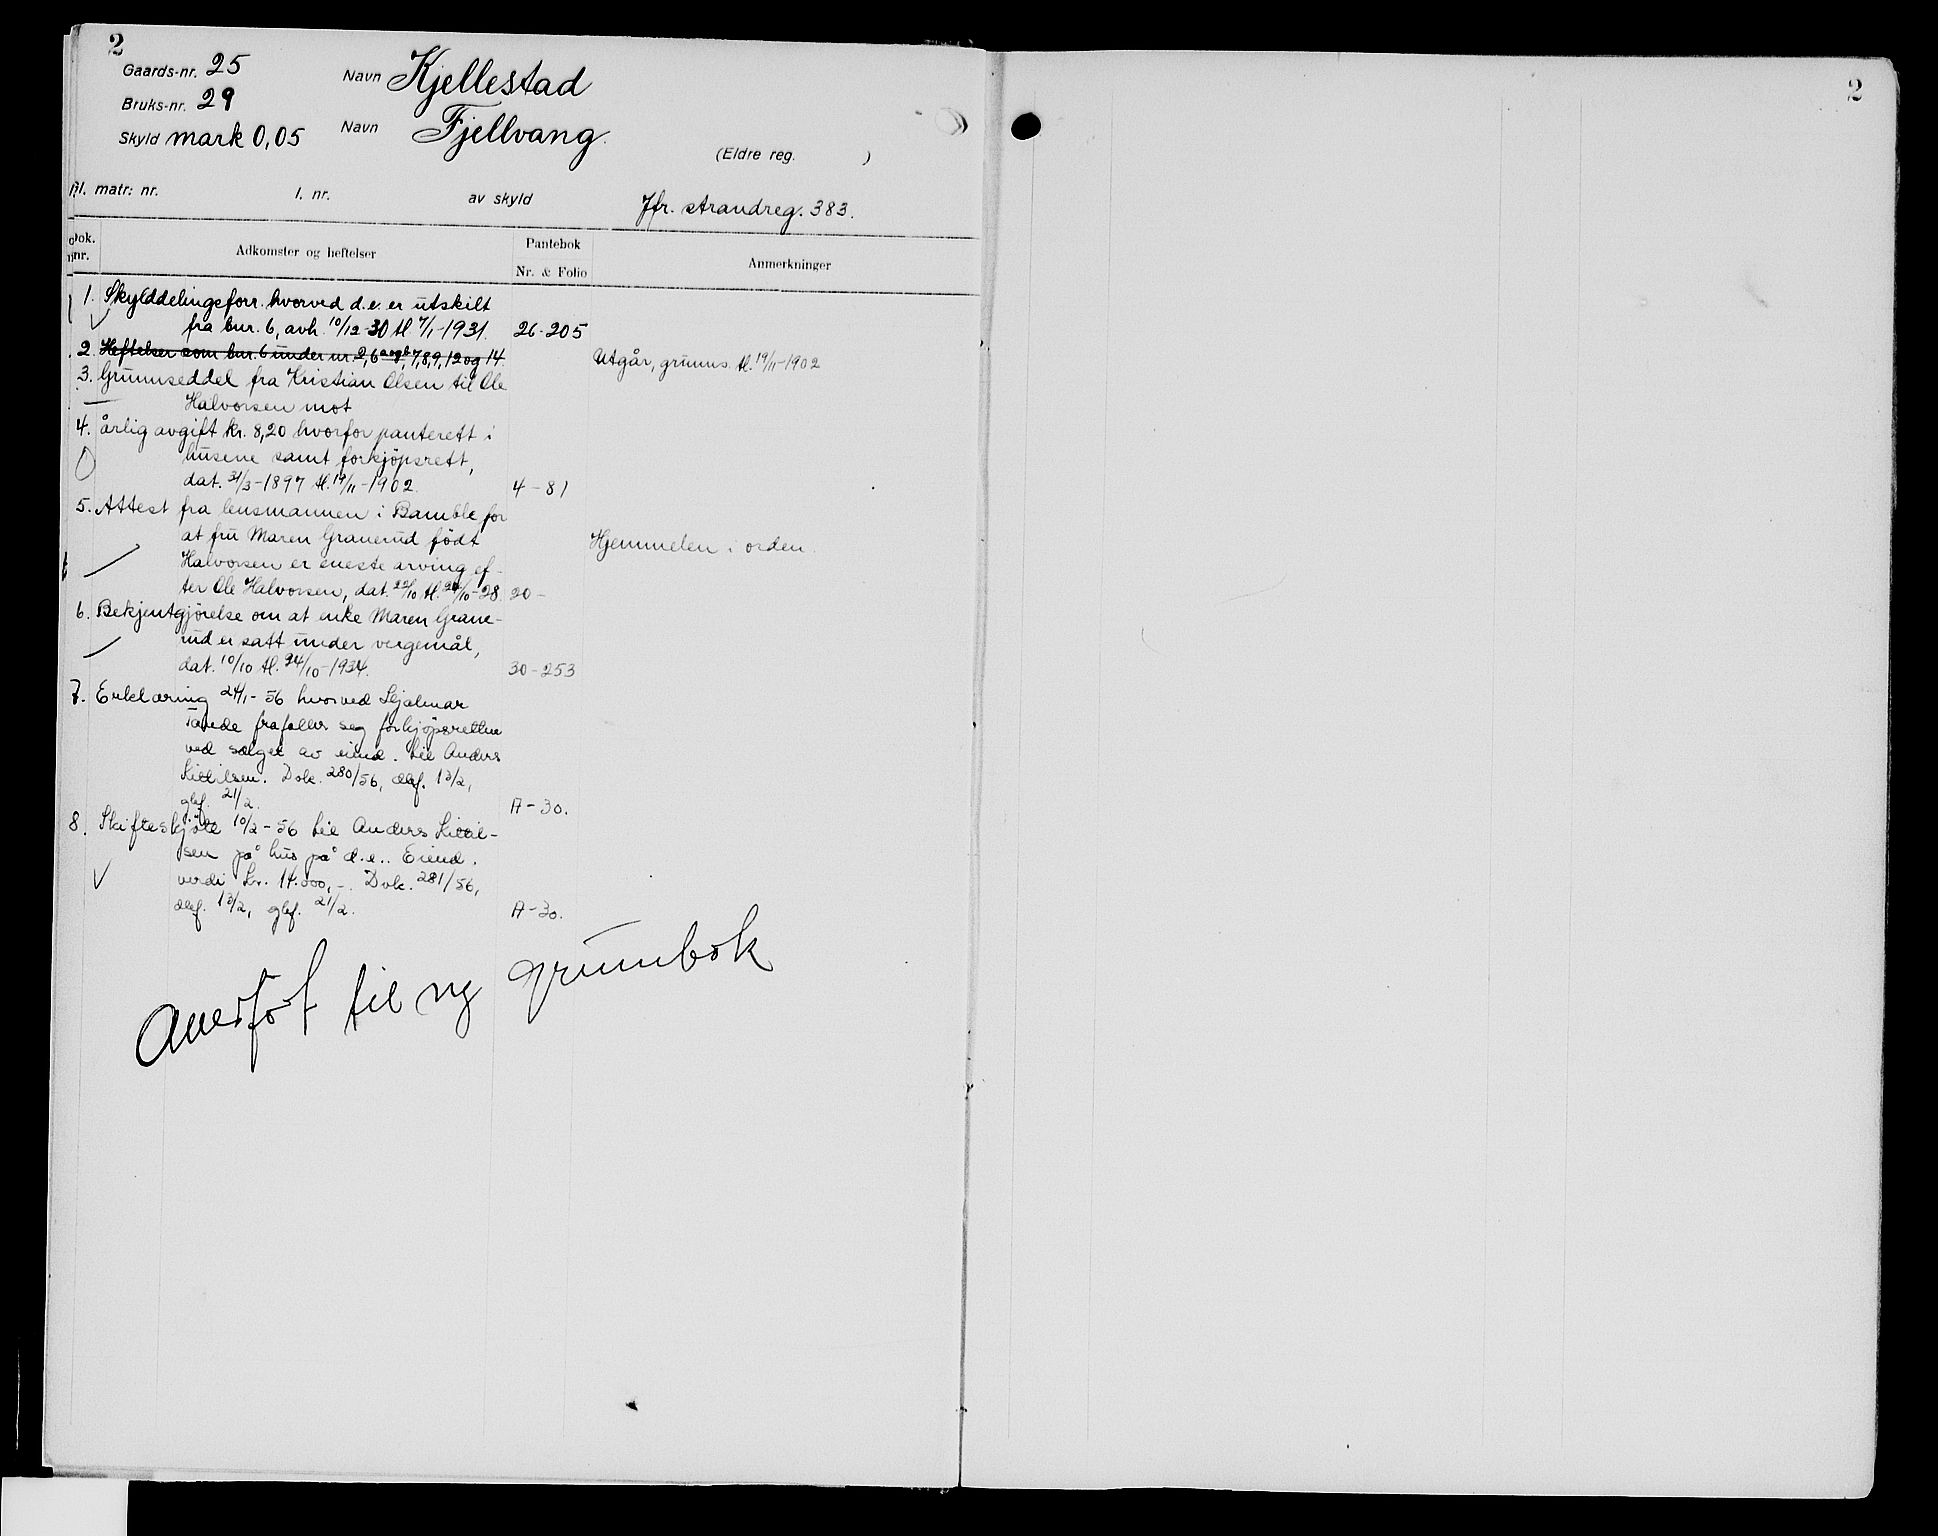 2
Gaards-nr. 25
Navn Kjellestad
Bruks-nr. 29
Navn Fjellvang.
Skyld mark 0,05
(Eldre reg. )
Gl. matr: nr. l. nr. av skyld
Jfr. strandreg. 383.
Dok. nr.
Adkomster og heftelser
Pantebok
Nr. & Folio
Anmerkninger
1. Skylddelingsforr. hvorved d.e. er utskilt
fra bnr. 6, avh. 10/12-30 tl 7/1-1931. 26-205
2. Heftelser som bnr. 6 under nr 2, 6 a og b, 7, 8, 9, 12 og 14. Utgår, grunns. tl. 19/11-1902
3. Grunnseddel fra Kristian Olsen til Ole
Halvorsen mot
4. årlig avgift kr. 8,20 hvorfor panterett i
husene samt forkjøpsrett,
dat. 31/3-1897 tl. 19/11-1902. 4-81
5. Attest fra lensmannen i Bamble for
at fru Maren Granerud født Hjemmelen i orden.
Halvorsen er eneste arving ef-
ter Ole Halvorsen, dat. 22/10 tl. 24/10-28. 20-
6. Bekjentgjørelse om at enke Maren Grane-
rud er satt under vergemål,
dat. 10/10 tl. 24/10-1934. 30-253
7. Erklæring 24/1-56 hvorved Hjalmar
Tande frafaller seg forkjøpsretten
ved salget av eiend. til Anders
Kittilsen. Dok. 280/56, dbf. 13/2,
gbf. 21/2. A-30.
8. Skifteskjøte 10/2-56 til Anders Kittil-
sen på hus på d.e.. Eiend.
verdi kr. 14.000,-. Dok. 281/56,
dbf. 13/2, gbf. 21/2. A-30.
Overført til ny grunnbok
2